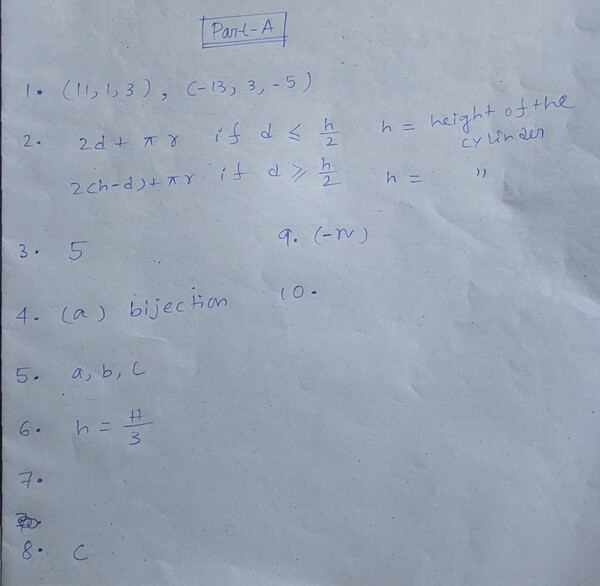 Part-A
1. (11, 1, 3), (-13, 3, -5)
2. 2d + π r if d ≤ h/2 h = height of the cylinder
2(h-d) + π r if d ≥ h/2 h = "
3. 5
9. (-n)
4. (a) bijection
10.
5. a, b, c
6. h = H/3
7.
8. C